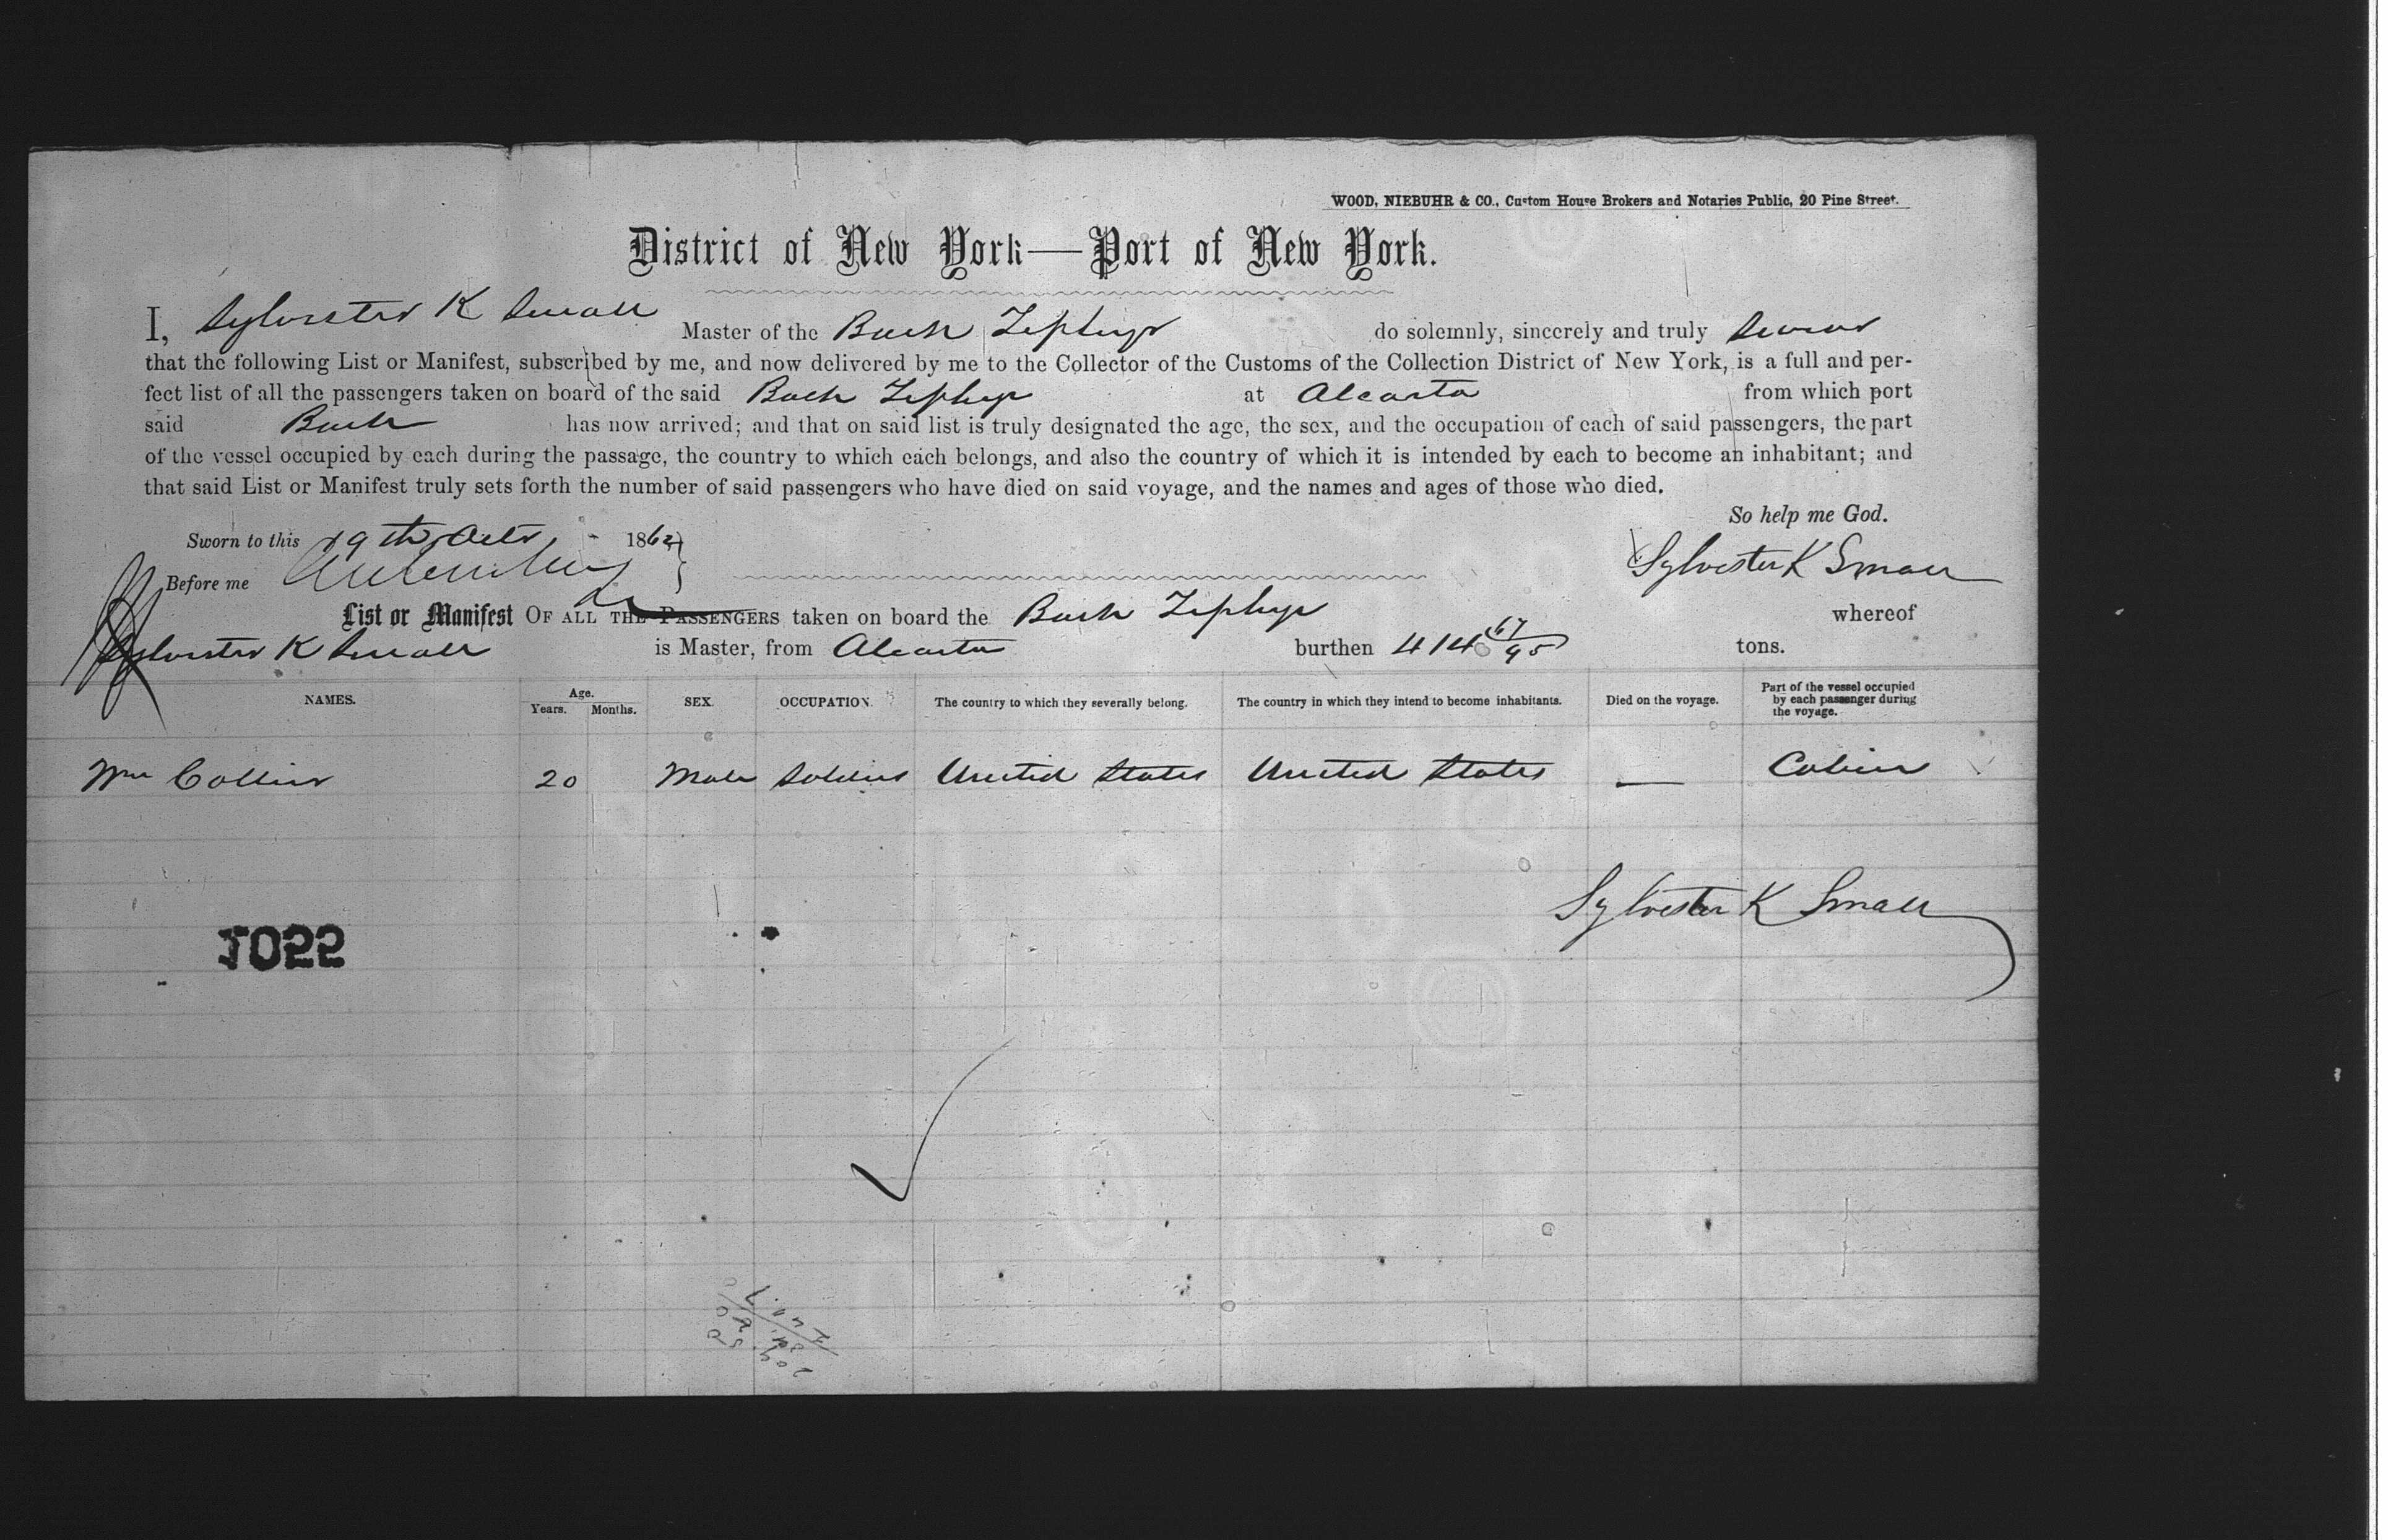 WOOD, NIEBUHR & CO., Custom House Brokers and Notaries Public, 20 Pine Street.
District of New York—Port of New York.
I, Sylvester K Small Master of the Bark Zephyr do solemnly, sincerely and truly swear
that the following List or Manifest, subscribed by me, and now delivered by me to the Collector of the Customs of the Collection District of New York, is a full and per-
fect list of all the passengers taken on board of the said Bark Zephyr at Alcasta from which port
said Bark has now arrived; and that on said list is truly designated the age, the sex, and the occupation of each of said passengers, the part
of the vessel occupied by each during the passage, the country to which each belongs, and also the country of which it is intended by each to become an inhabitant; and
that said List or Manifest truly sets forth the number of said passengers who have died on said voyage, and the names and ages of those who died.
So help me God.
Sworn to this 19th Octr 1862
Sylvester K Small
Before me
List or Manifest OF ALL THE PASSENGERS taken on board the Bark Zephyr whereof
Sylvester K Small is Master, from Alcasta burthen 414 67/95 tons.
NAMES. Age. Years. Months. SEX. OCCUPATION. The country to which they severally belong. The country in which they intend to become inhabitants. Died on the voyage. Part of the vessel occupied by each passenger during the voyage.
Wm Collins 20 Male Soldier United States United States — Cabin
Sylvester K Small
1022